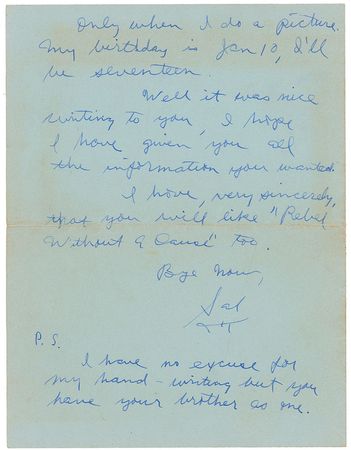 Only when I do a picture.
My birthday is Jan 10, I'll
be seventeen.
Well it was nice
writing to you, I hope
I have given you all
the information you wanted.
I hope, very sincerely,
that you will like "Rebel
Without A Cause" too.
Bye Now,
Sal
P.S.
I have no excuse for
my hand-writing but you
have your brother as one.